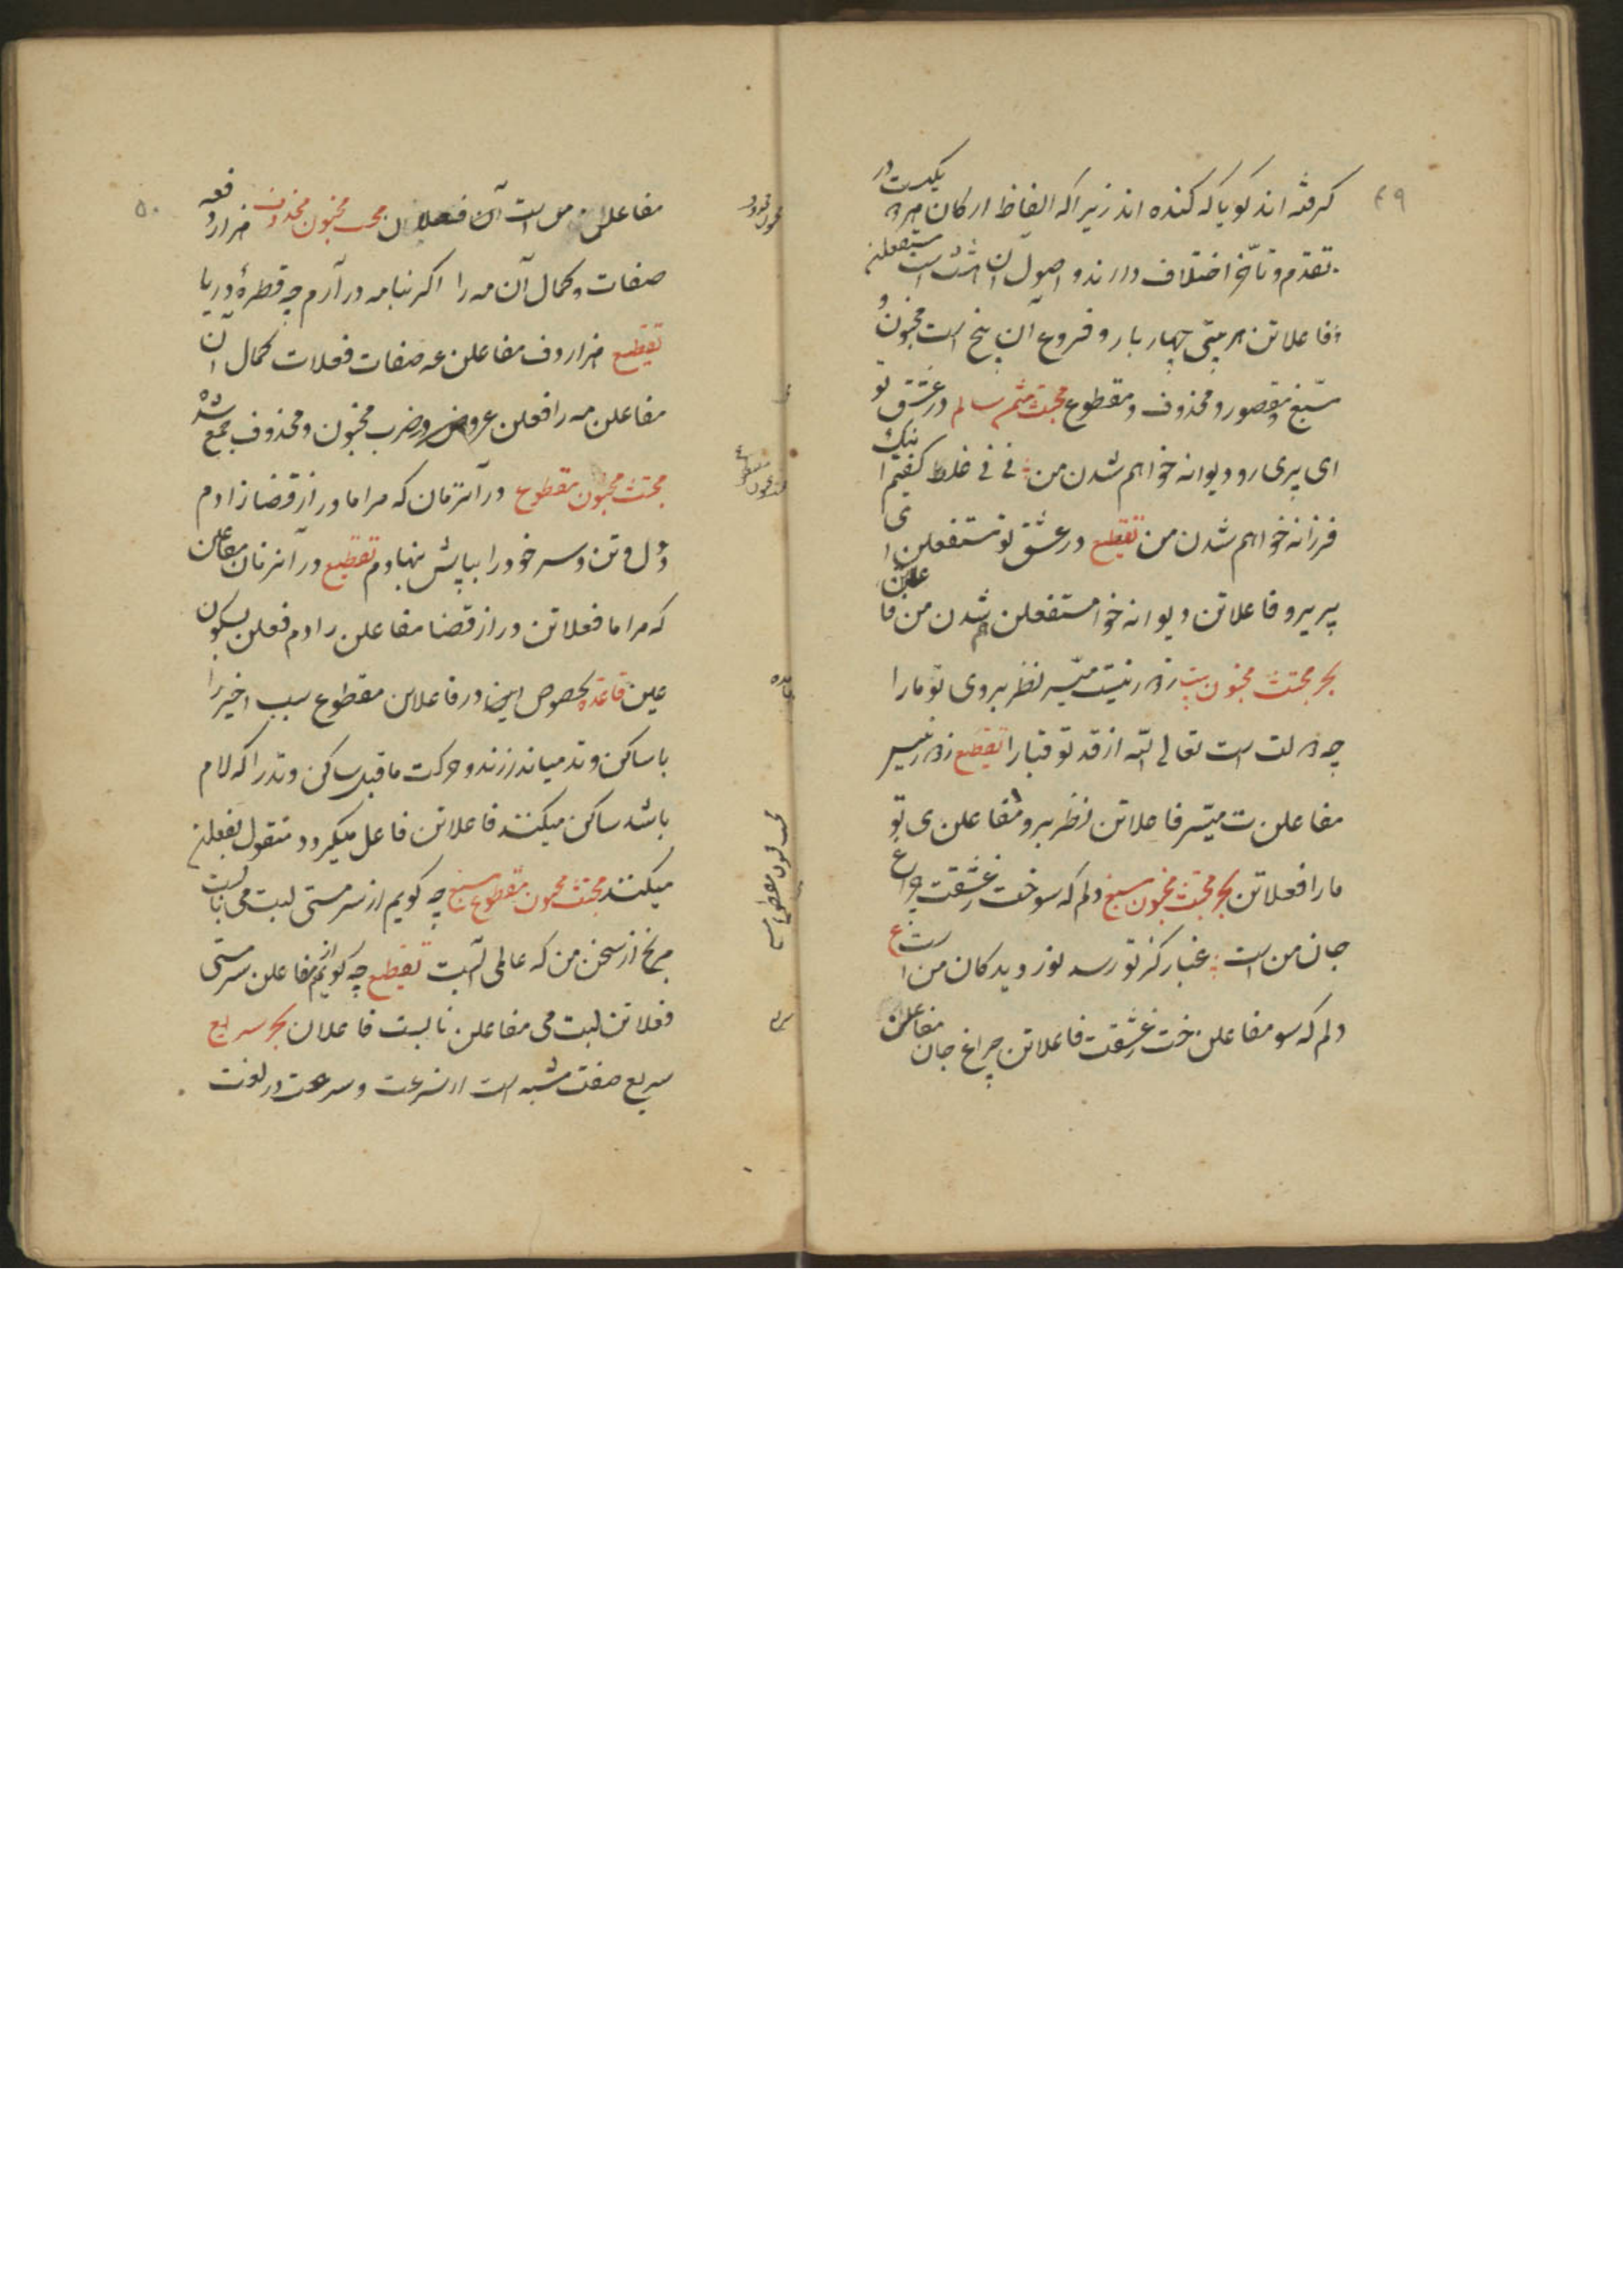 ۴۹
گرفته اند گویا که کنده اند زیرا که الفاظ ارکان هر دو یکیست در
تقدم و تأخر اختلاف دارند و اصول آن هشت است مستفعلن
فاعلاتن هر بیتی چهار بار و فروع آن پنج است مخبون و
مسبّغ و مقصور و محذوف و مقطوع مجتث مثمن سالم در عشق تو
ای پری رو دیوانه خواهم شدن من نی نی غلط گفتم اینک
فرزانه خواهم شدن من تقطیع در عشق تو مستفعلن ای
پریرو فاعلاتن دیوانه خوا مستفعلن هم شدن من فاعلاتن
بحر مجتث مخبون بیت ز دور نیست میسّر نظر بروی تو ما را
چه دولت است تعالی الله از قد تو قبا را تقطیع ز دور نیس
مفاعلن ت میسّر فاعلاتن نظر برو مفاعلن ی تو
ما را فعلاتن بحر مجتث مخبون مسبغ دلم که سوخت ز عشقت چراغ
جان من است غبار کز تو رسد نور دیدگان من است
دلم که سو مفاعلن خت ز عشقت فاعلاتن چراغ جان مفاعلن
۵۰
مفاعلن من است آن فعلان مجتث مخبون محذوف هزار دفعه
صفات و کمال آن مه را اگر بنامه درآرم چه قطرهٔ دریا
تقطیع هزار دف مفاعلن عه صفات فعلات کمال آن
مفاعلن مه را فعلن عروض و ضرب مخبون و محذوف جمع شده
مجتث مخبون مقطوع در آنزمان که مرا مادر از قضا زادم
دل و تن و سر خود را بپایش نهادم تقطیع در آنزمان مفاعلن
که مرا ما فعلاتن در از قضا مفاعلن زادم فعلن بسکون
عین قاعده بخصوص اینجا در فاعلاتن مقطوع سبب اخیر را
با ساکن وتد میاندازند و حرکت ماقبل ساکن وتد را که لام
باشد ساکن میکنند فاعلاتن فاعل میگردد منقول بفعلن
میکنند مجتث مخبون مقطوع مسبغ چه گویم از سرمستی لبت می نابست
مرنج از سخن من که عالمی آبست تقطیع چه گویم از مفاعلن سرمستی
فعلاتن لبت می مفاعلن نابست فاعلان بحر سریع
سریع صفت مشبه است از سرعت و سرعت در لغت